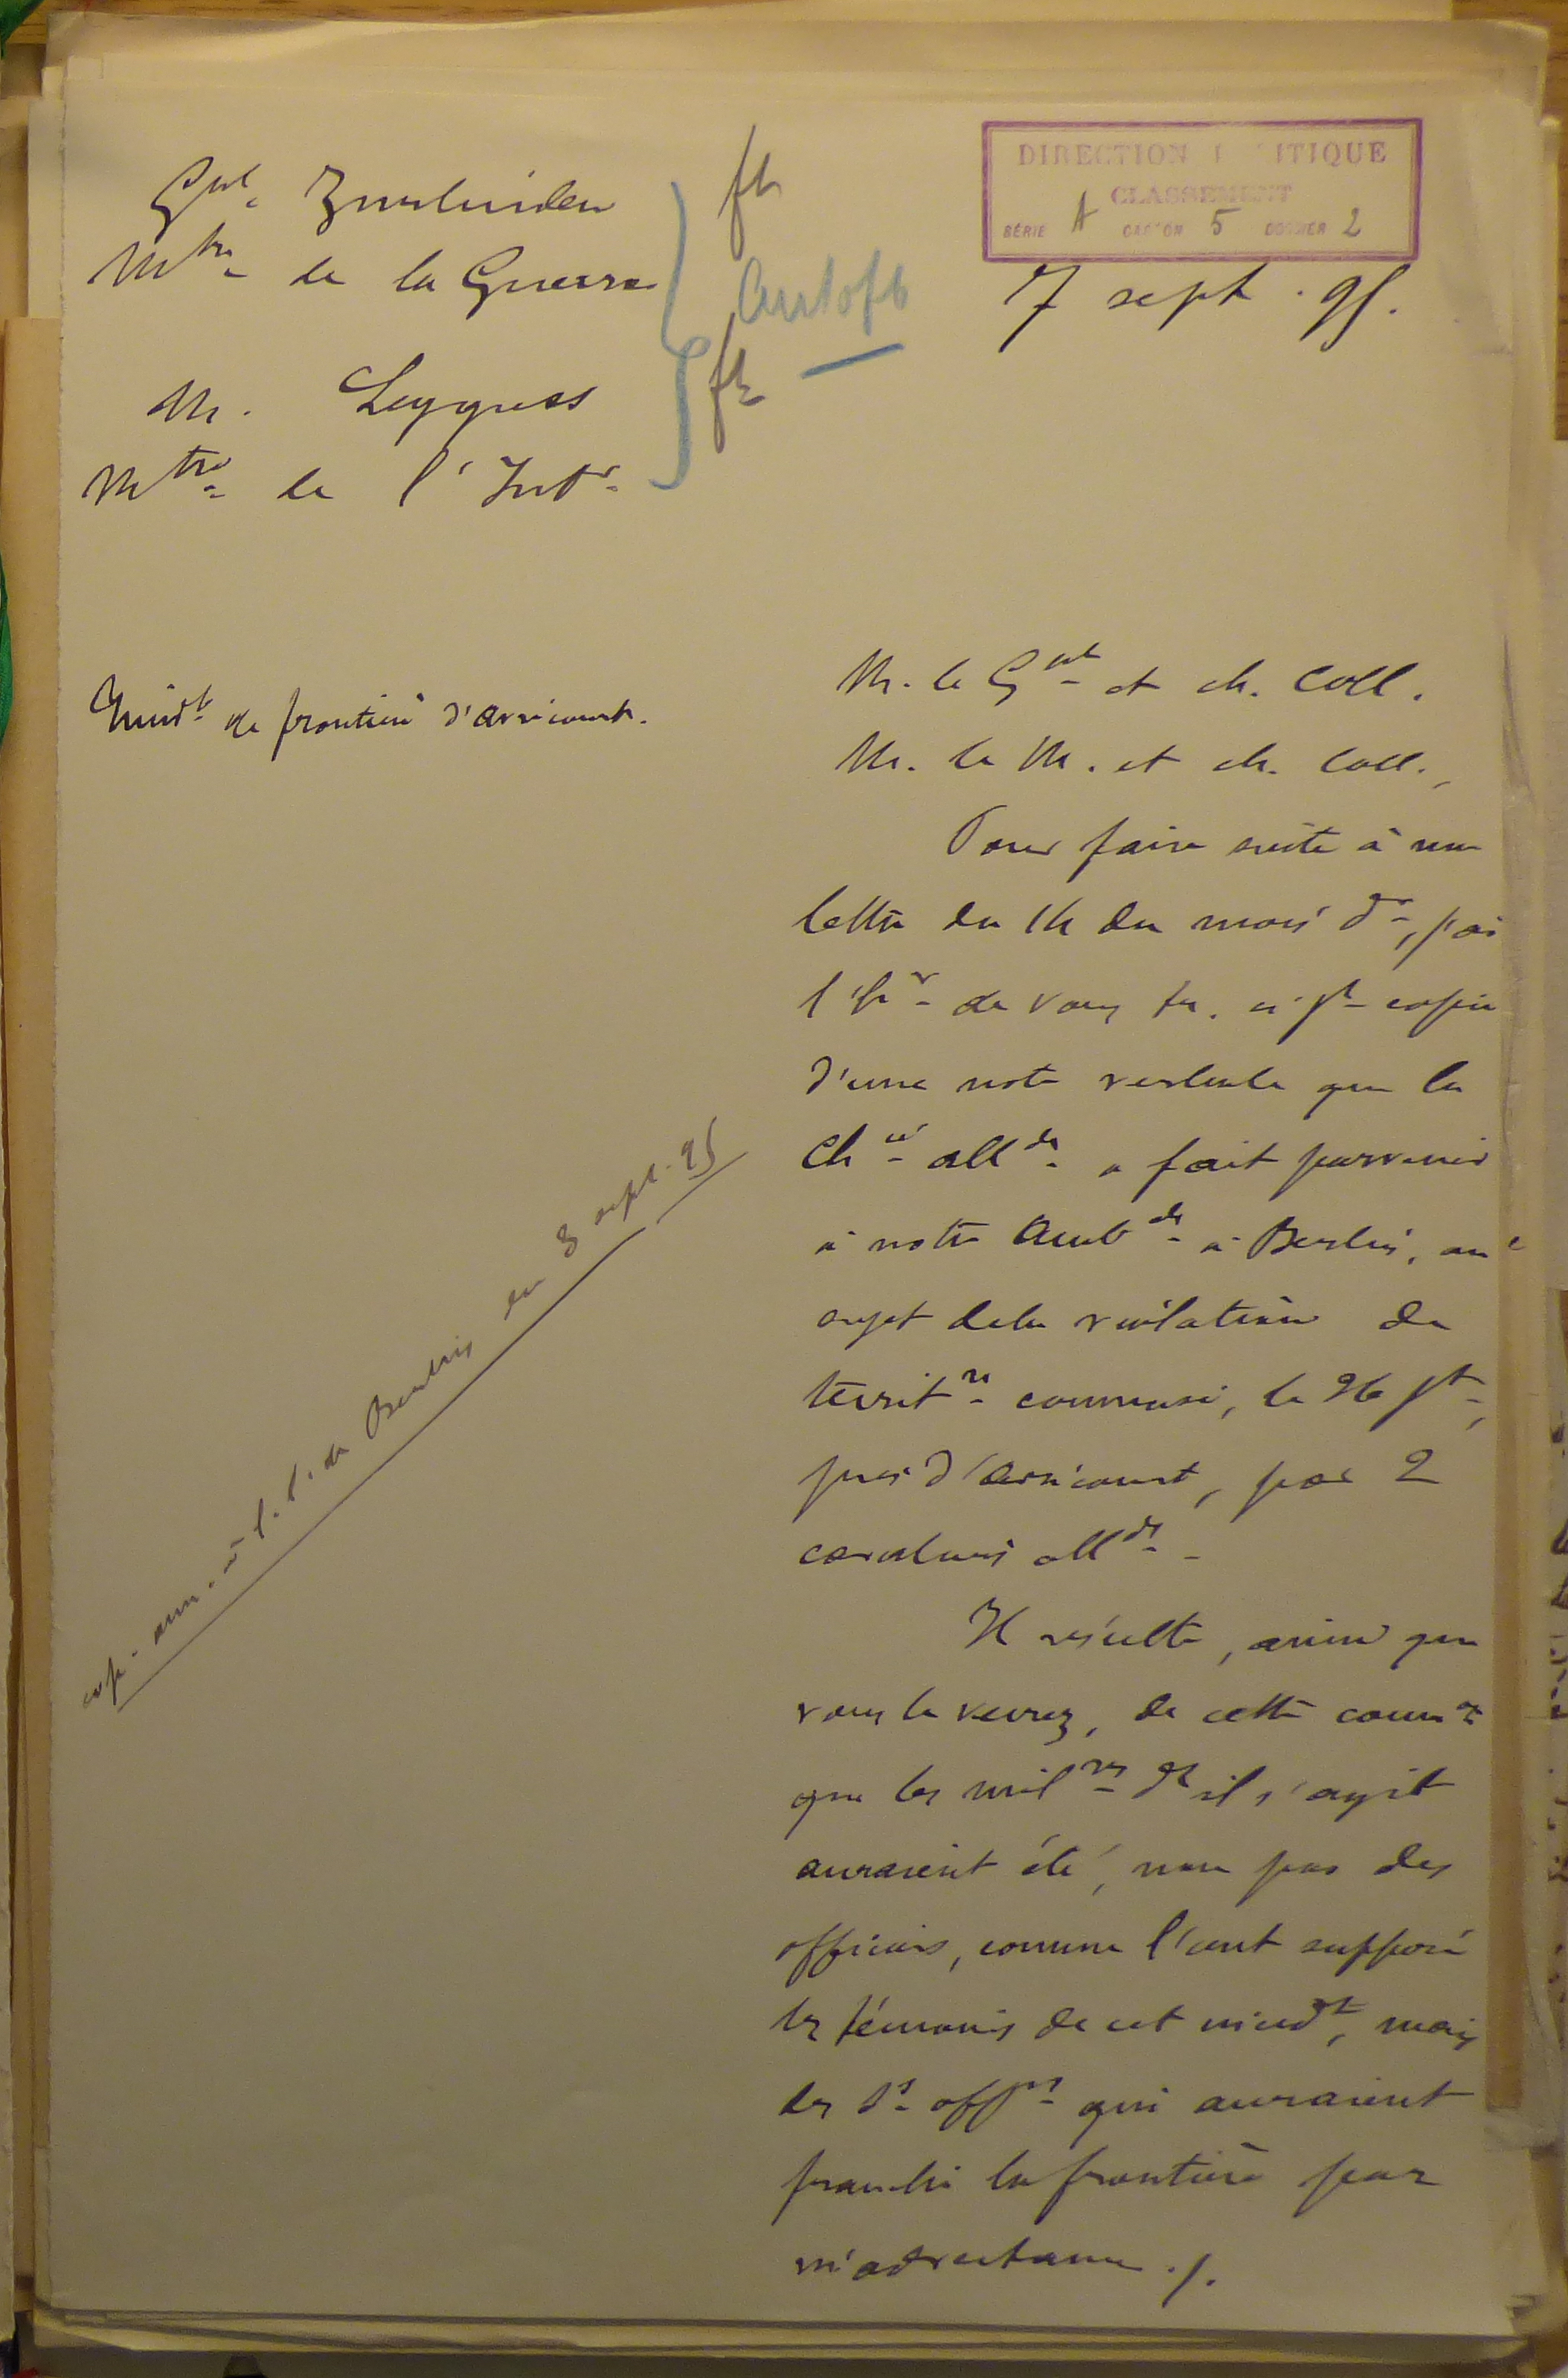 DIRECTION POLITIQUE
CLASSEMENT
SÉRIE A CARTON 5 DOSSIER 2
7 sept. 95.
Gal. Zurlinden
Mtre de la Guerre
M. Leygues
Mtre de l'Intr.
Incidt de frontière d'Avricourt.
M. le Gal et ch. Coll.
M. le M. et ch. Coll.,
Pour faire suite à ma
lettre du 14 du mois dr, j'ai
l'hr de vous tr. ci-jt copie
d'une note verbale que la
Chie allde a fait parvenir
à notre Ambde à Berlin, au
sujet de la violation de
territre commise, le 26 jt,
près d'Avricourt, par 2
cavaliers allds.
Il résulte, ainsi que
vous le verrez, de cette comon
que les milres dt il s'agit
auraient été, non pas des
officiers, comme l'ont supposé
les témoins de cet incidt, mais
des ss offrs qui auraient
franchi la frontière par
inadvertance./.
cop. ann. à l. t. de Berlin du 3 sept. 95